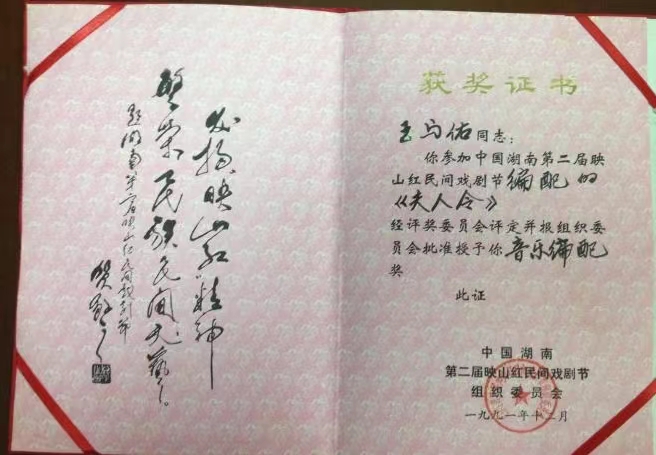 发扬“映山红”精神
繁荣民族民间文艺。
题湖南第二届映山红民间戏剧节
获奖证书
王马佑同志：
你参加中国湖南第二届映
山红民间戏剧节编配的
《夫人令》
经评奖委员会评定并报组织委
员会批准授予你音乐编配
奖
此证
中国湖南
第二届映山红民间戏剧节
组织委员会
一九九一年十二月